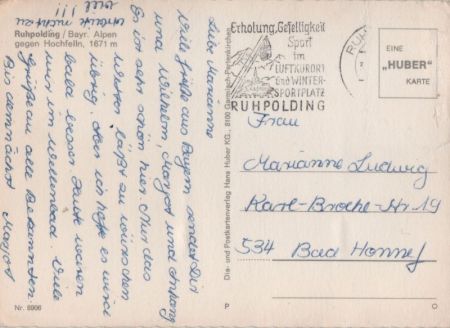 Ruhpolding / Bayr. Alpen
gegen Hochfelln, 1671 m
Liebe Marianne
Viele Grüße aus Bayern sendet Dir
und Wilhelm, Margot und Anhang
Es ist sehr schön hier. Nur das
Wetter läßt zu wünschen
übrig. Aber ich hoffe es wird
bald besser. Heute waren
wir im Wellenbad. Viele
Grüße an alle Bekannten
Bis demnächst Margot
Nr. 8906
Dia- und Postkartenverlag Hans Huber KG., 8100 Garmisch-Partenkirchen
Erholung, Geselligkeit
Sport
im
LUFTKURORT
und WINTER-
SPORTPLATZ
RUHPOLDING
RUH
EINE
„HUBER"
KARTE
Frau
Marianne Ludwig
Karl-Broche-Str 19
534 Bad Honnef
P O